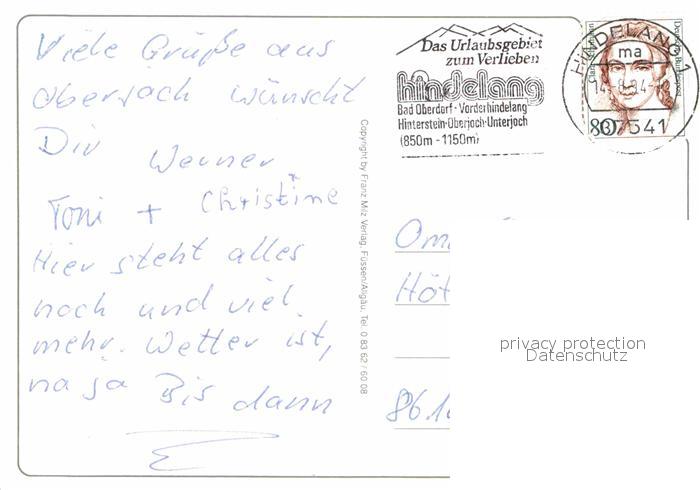 Viele Grüße aus
Oberjoch wünscht
Dir Werner
Toni + Christine
Hier steht alles
noch und viel
mehr. Wetter ist,
na ja Bis dann
Copyright by Franz Milz Verlag, Füssen/Allgäu, Tel. 0 83 62 / 60 08
Das Urlaubsgebiet
zum Verlieben
hindelang
Bad Oberdorf · Vorderhindelang
Hinterstein·Oberjoch·Unterjoch
(850m - 1150m)
HINDELANG 1
ma
87541
80
privacy protection
Datenschutz